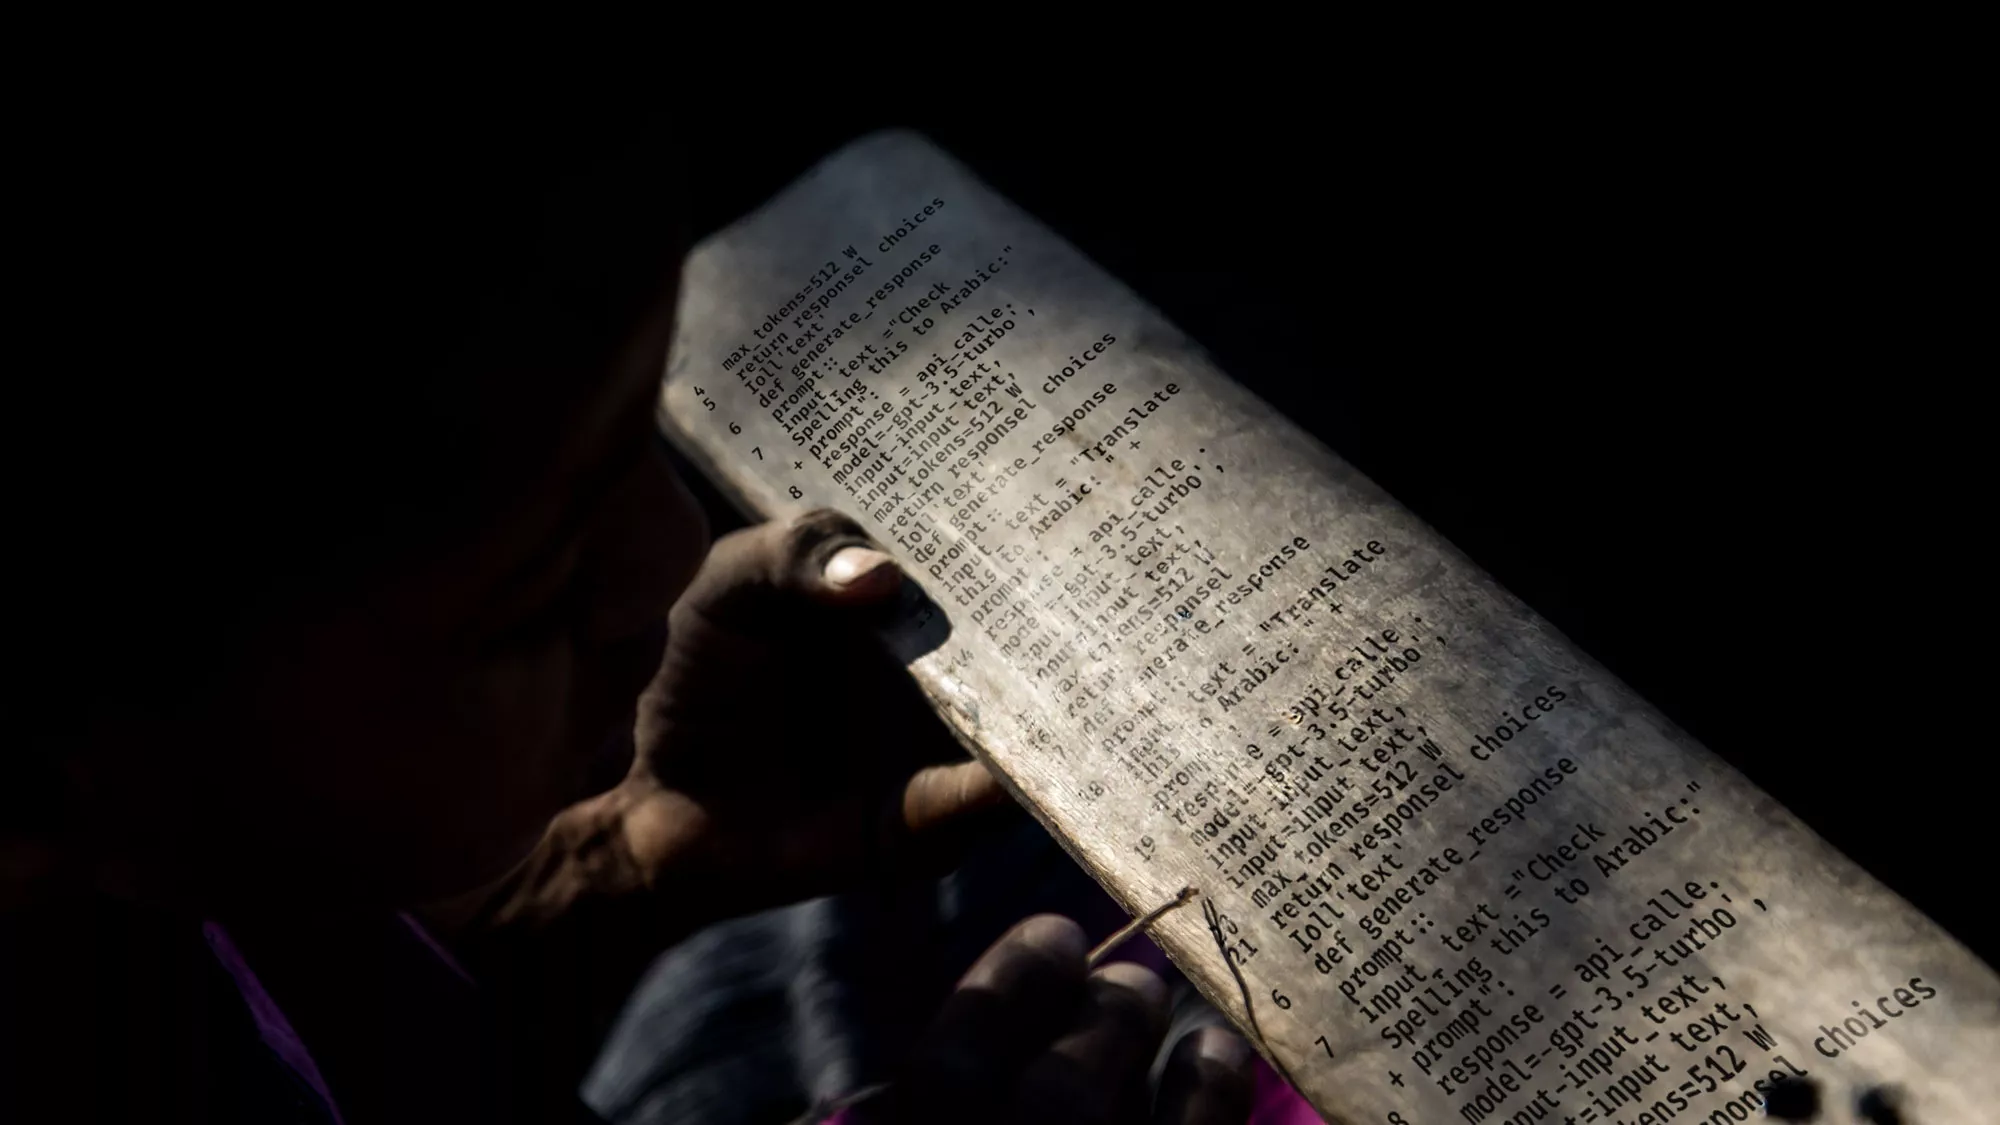 max_tokens=512 W
4 return responsel choices
5 Ioll'text'
def generate_response
6 prompt::
input_ text ="Check
7 Spelling this to Arabic:"
+ prompt":
response = api_calle.
8 model=-gpt-3.5-turbo',
input-input_text,
input=input text,
max_tokens=512 W
return responsel choices
Ioll'text'
def generate_response
prompt::
input_ text = "Translate
this to Arabic: " +
prompt":
response = api_calle.
14 model=-gpt-3.5-turbo',
input-input_text,
input=input text,
max tokens=512 W
return responsel
def generate_response
prompt::
18 input_ text = "Translate
this to Arabic: " +
prompt":
19 response = api_calle.
model=-gpt-3.5-turbo',
input-input_text,
input=input text,
20 max_tokens=512 W
21 return responsel choices
Ioll'text'
def generate_response
6 prompt::
input_ text ="Check
7 Spelling this to Arabic:"
+ prompt":
response = api_calle.
8 model=-gpt-3.5-turbo',
input-input_text,
input=input text,
choices